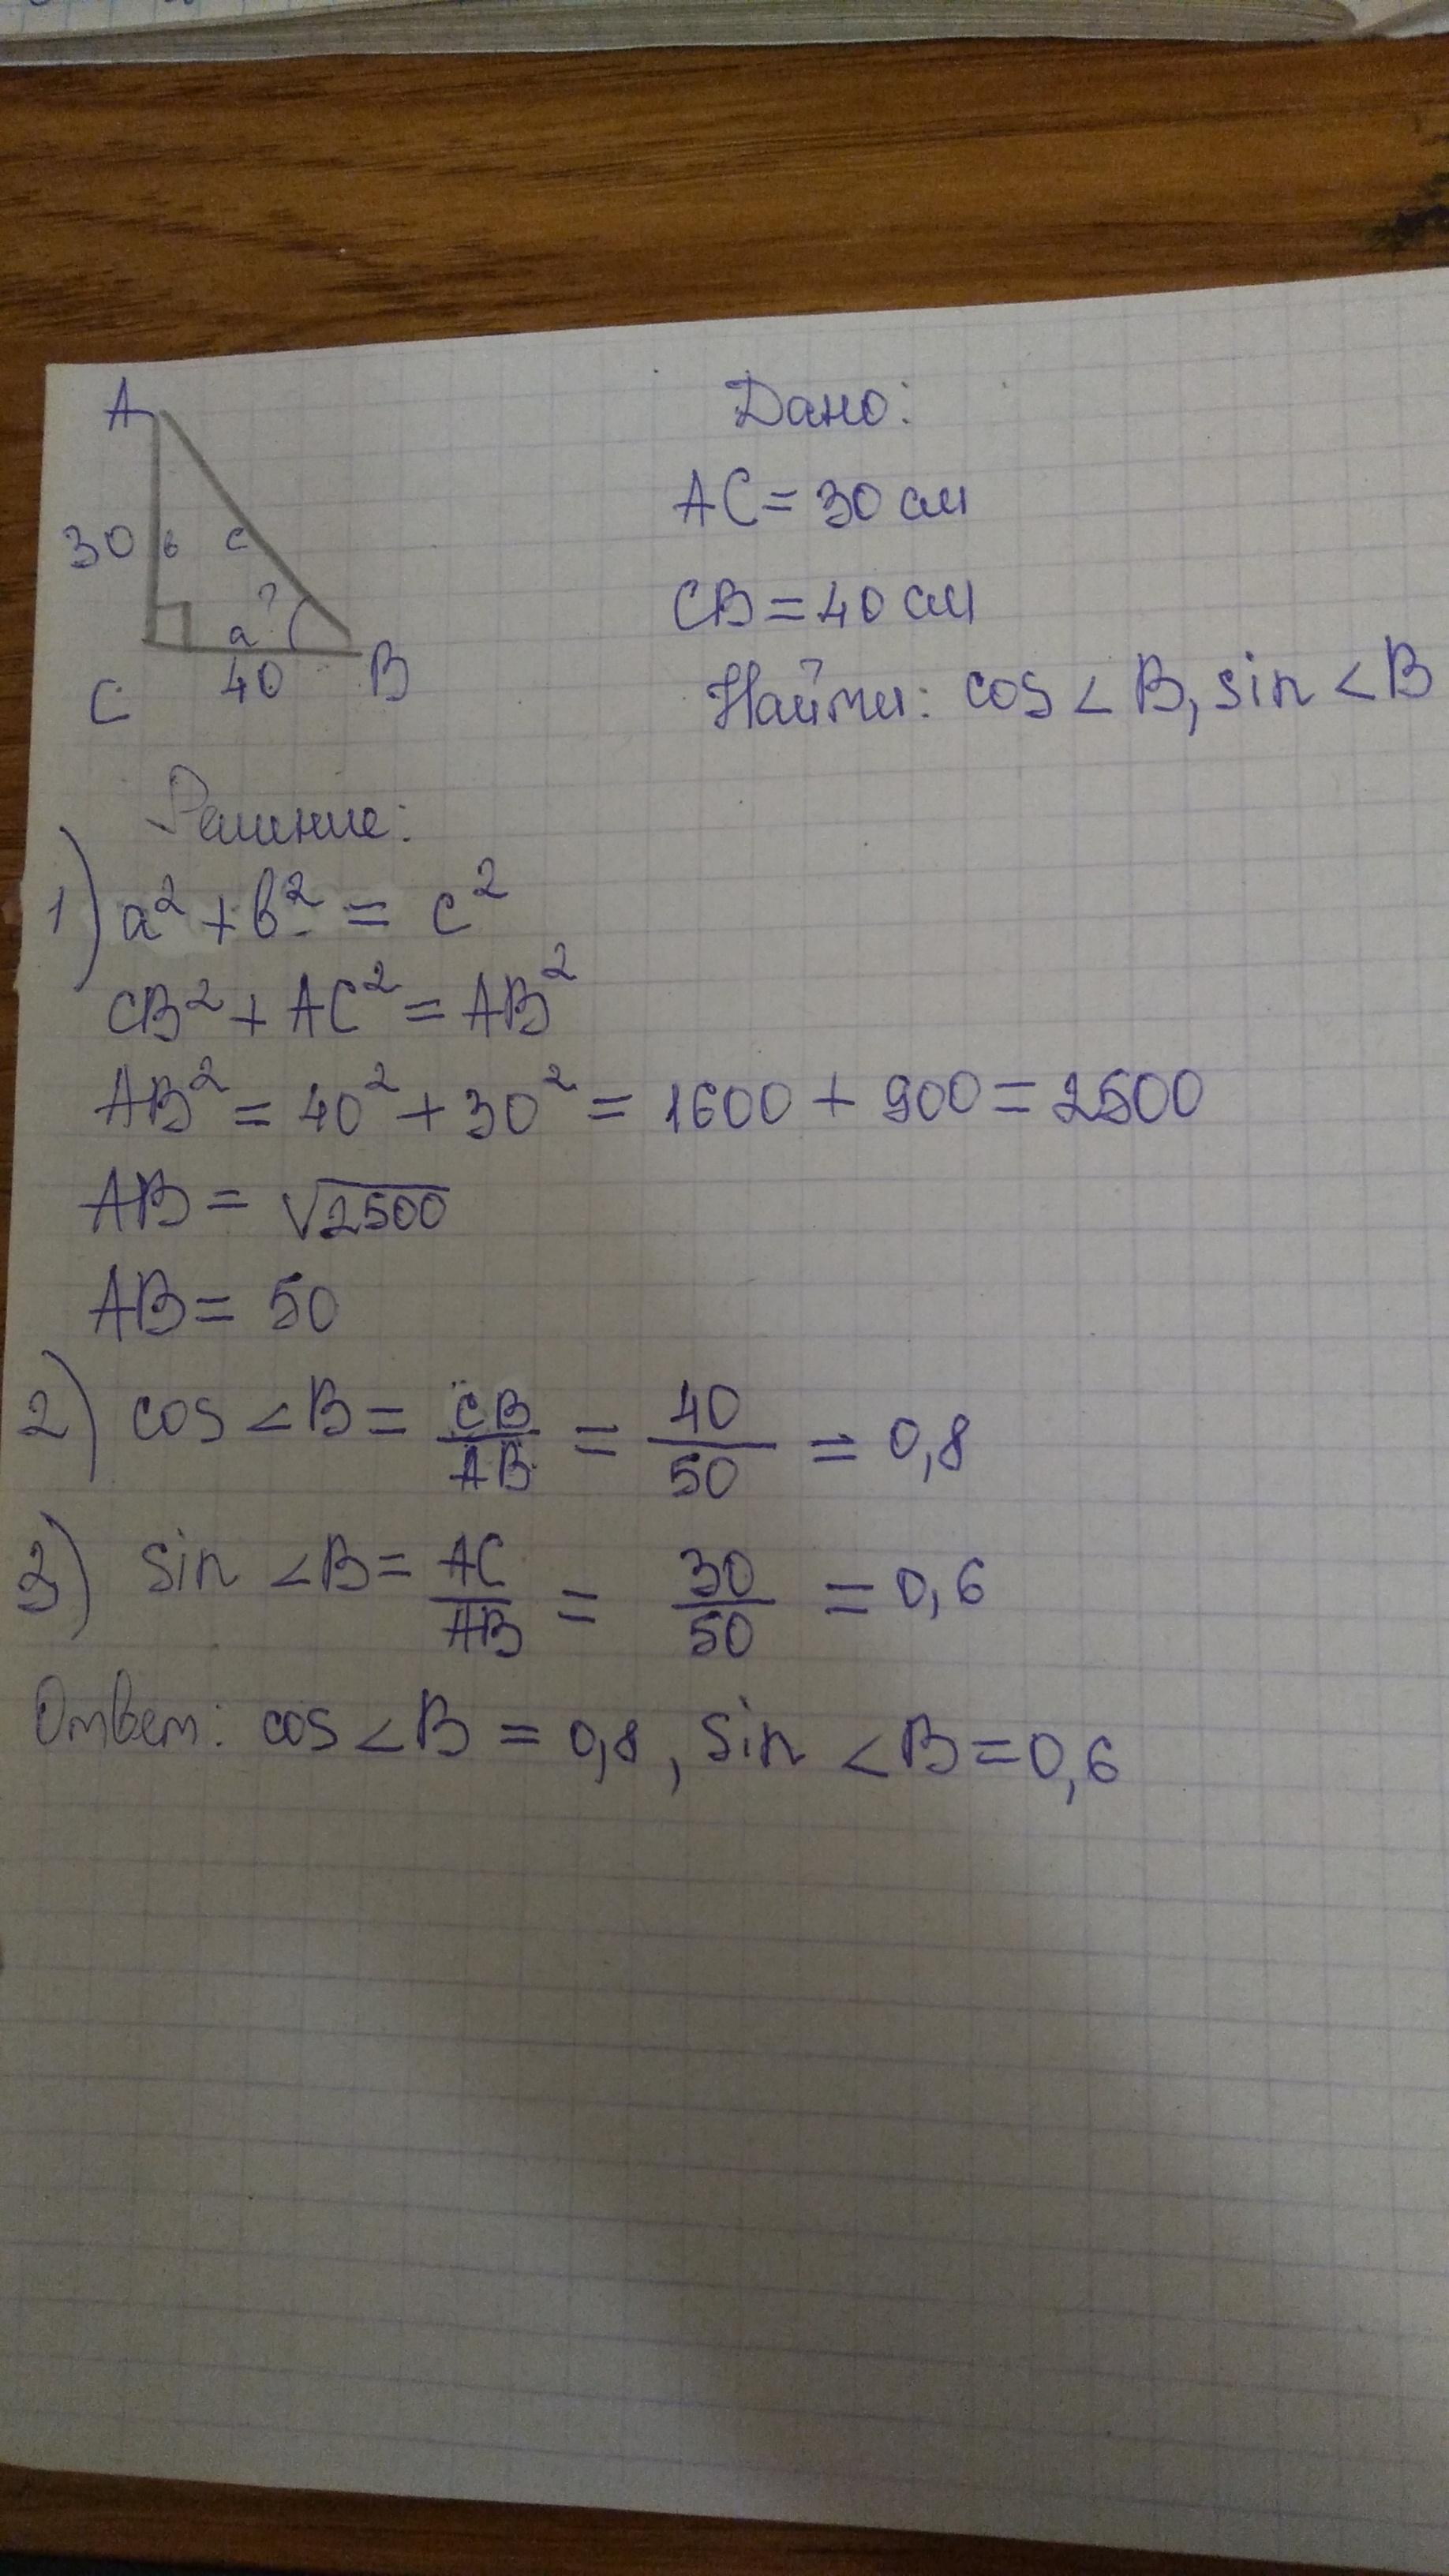 A
30 в c
a ?
40
C B
Дано:
AC = 30 см
CB = 40 см
Найти: cos ∠B, sin ∠B
Решение:
1) a² + в² = c²
CB² + AC² = AB²
AB² = 40² + 30² = 1600 + 900 = 2500
AB = √2500
AB = 50
2) cos ∠B = CB/AB = 40/50 = 0,8
3) sin ∠B = AC/AB = 30/50 = 0,6
Ответ: cos ∠B = 0,8, sin ∠B = 0,6